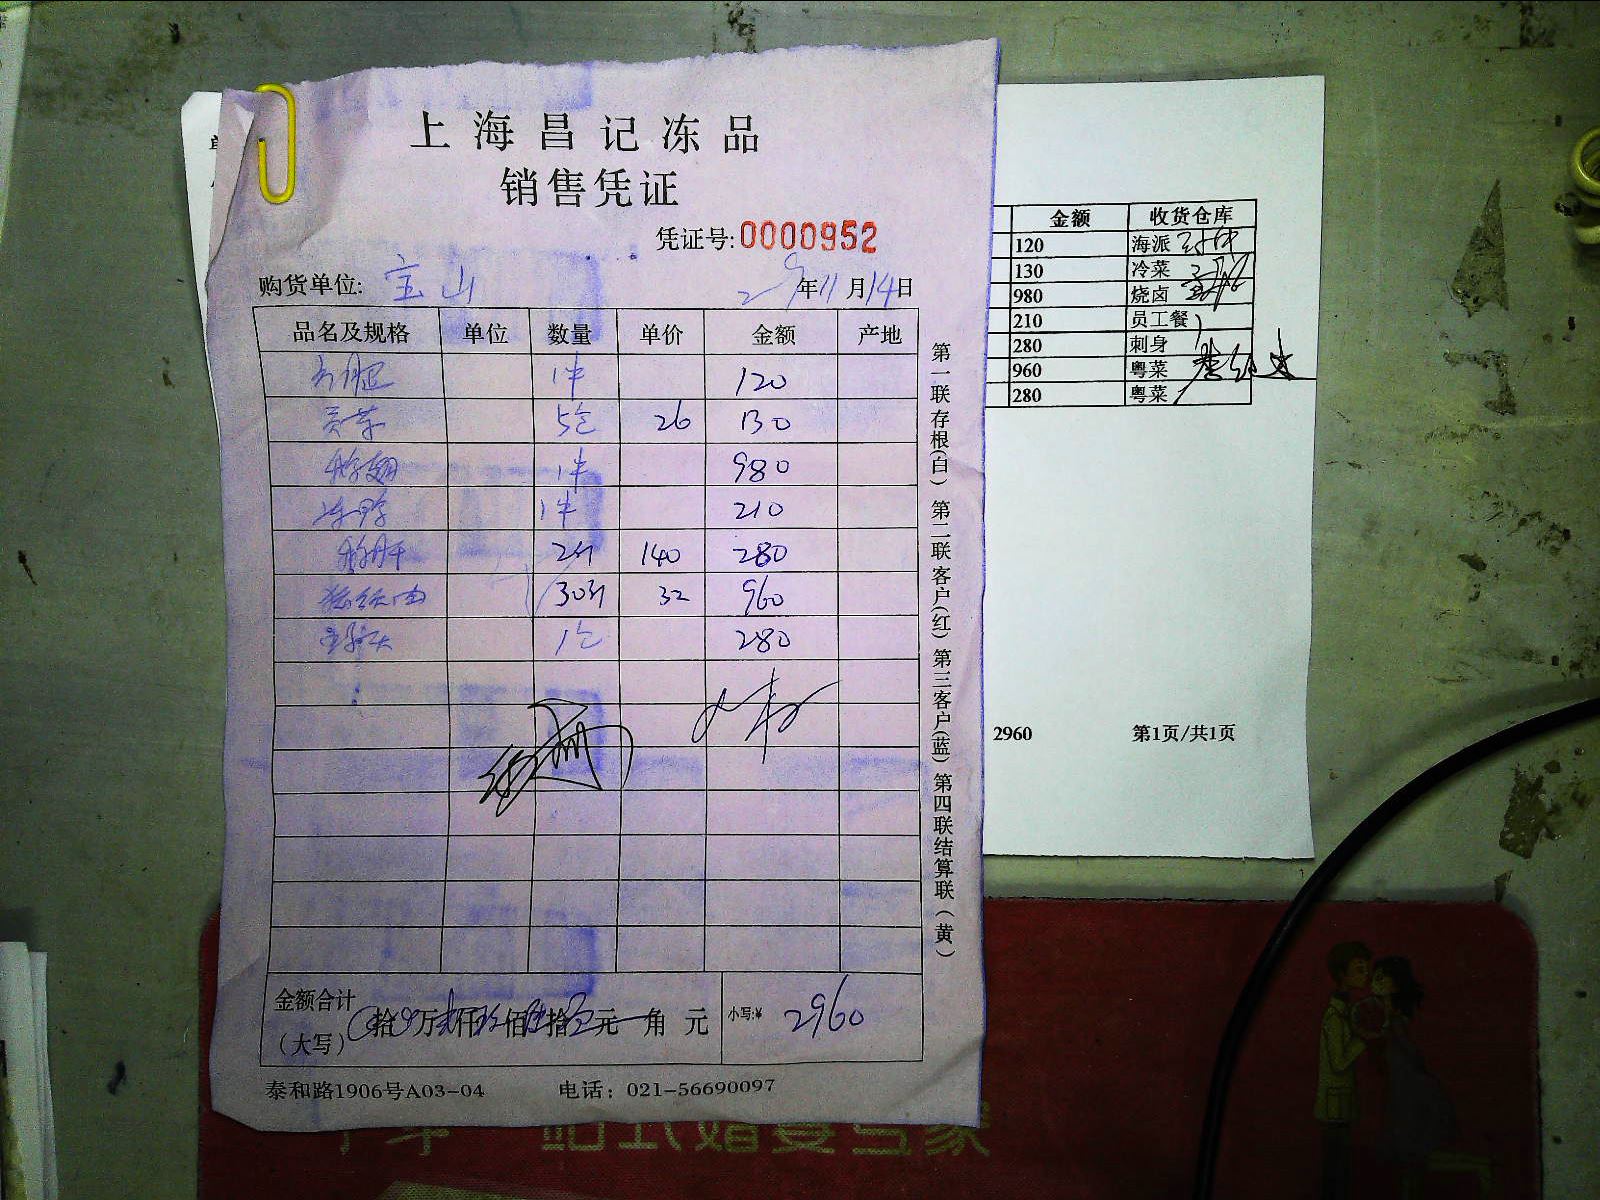 上海昌记冻品
销售凭证
凭证号:0000952
购货单位: 宝山 年11月14日
品名及规格 单位 数量 单价 金额 产地
1件 120
贡菜 5包 26 130
1件 980
1件 210
2斤 140 280
30斤 32 960
1包 280
金额合计
(大写) 拾 万 仟 佰 拾 元 角 元 小写:¥ 2960
泰和路1906号A03-04 电话: 021-56690097
第一联存根(白) 第二联客户(红) 第三客户(蓝) 第四联结算联(黄)
金额 收货仓库
120 海派
130 冷菜
980 烧卤
210 员工餐
280 刺身
960 粤菜
280 粤菜
2960 第1页/共1页